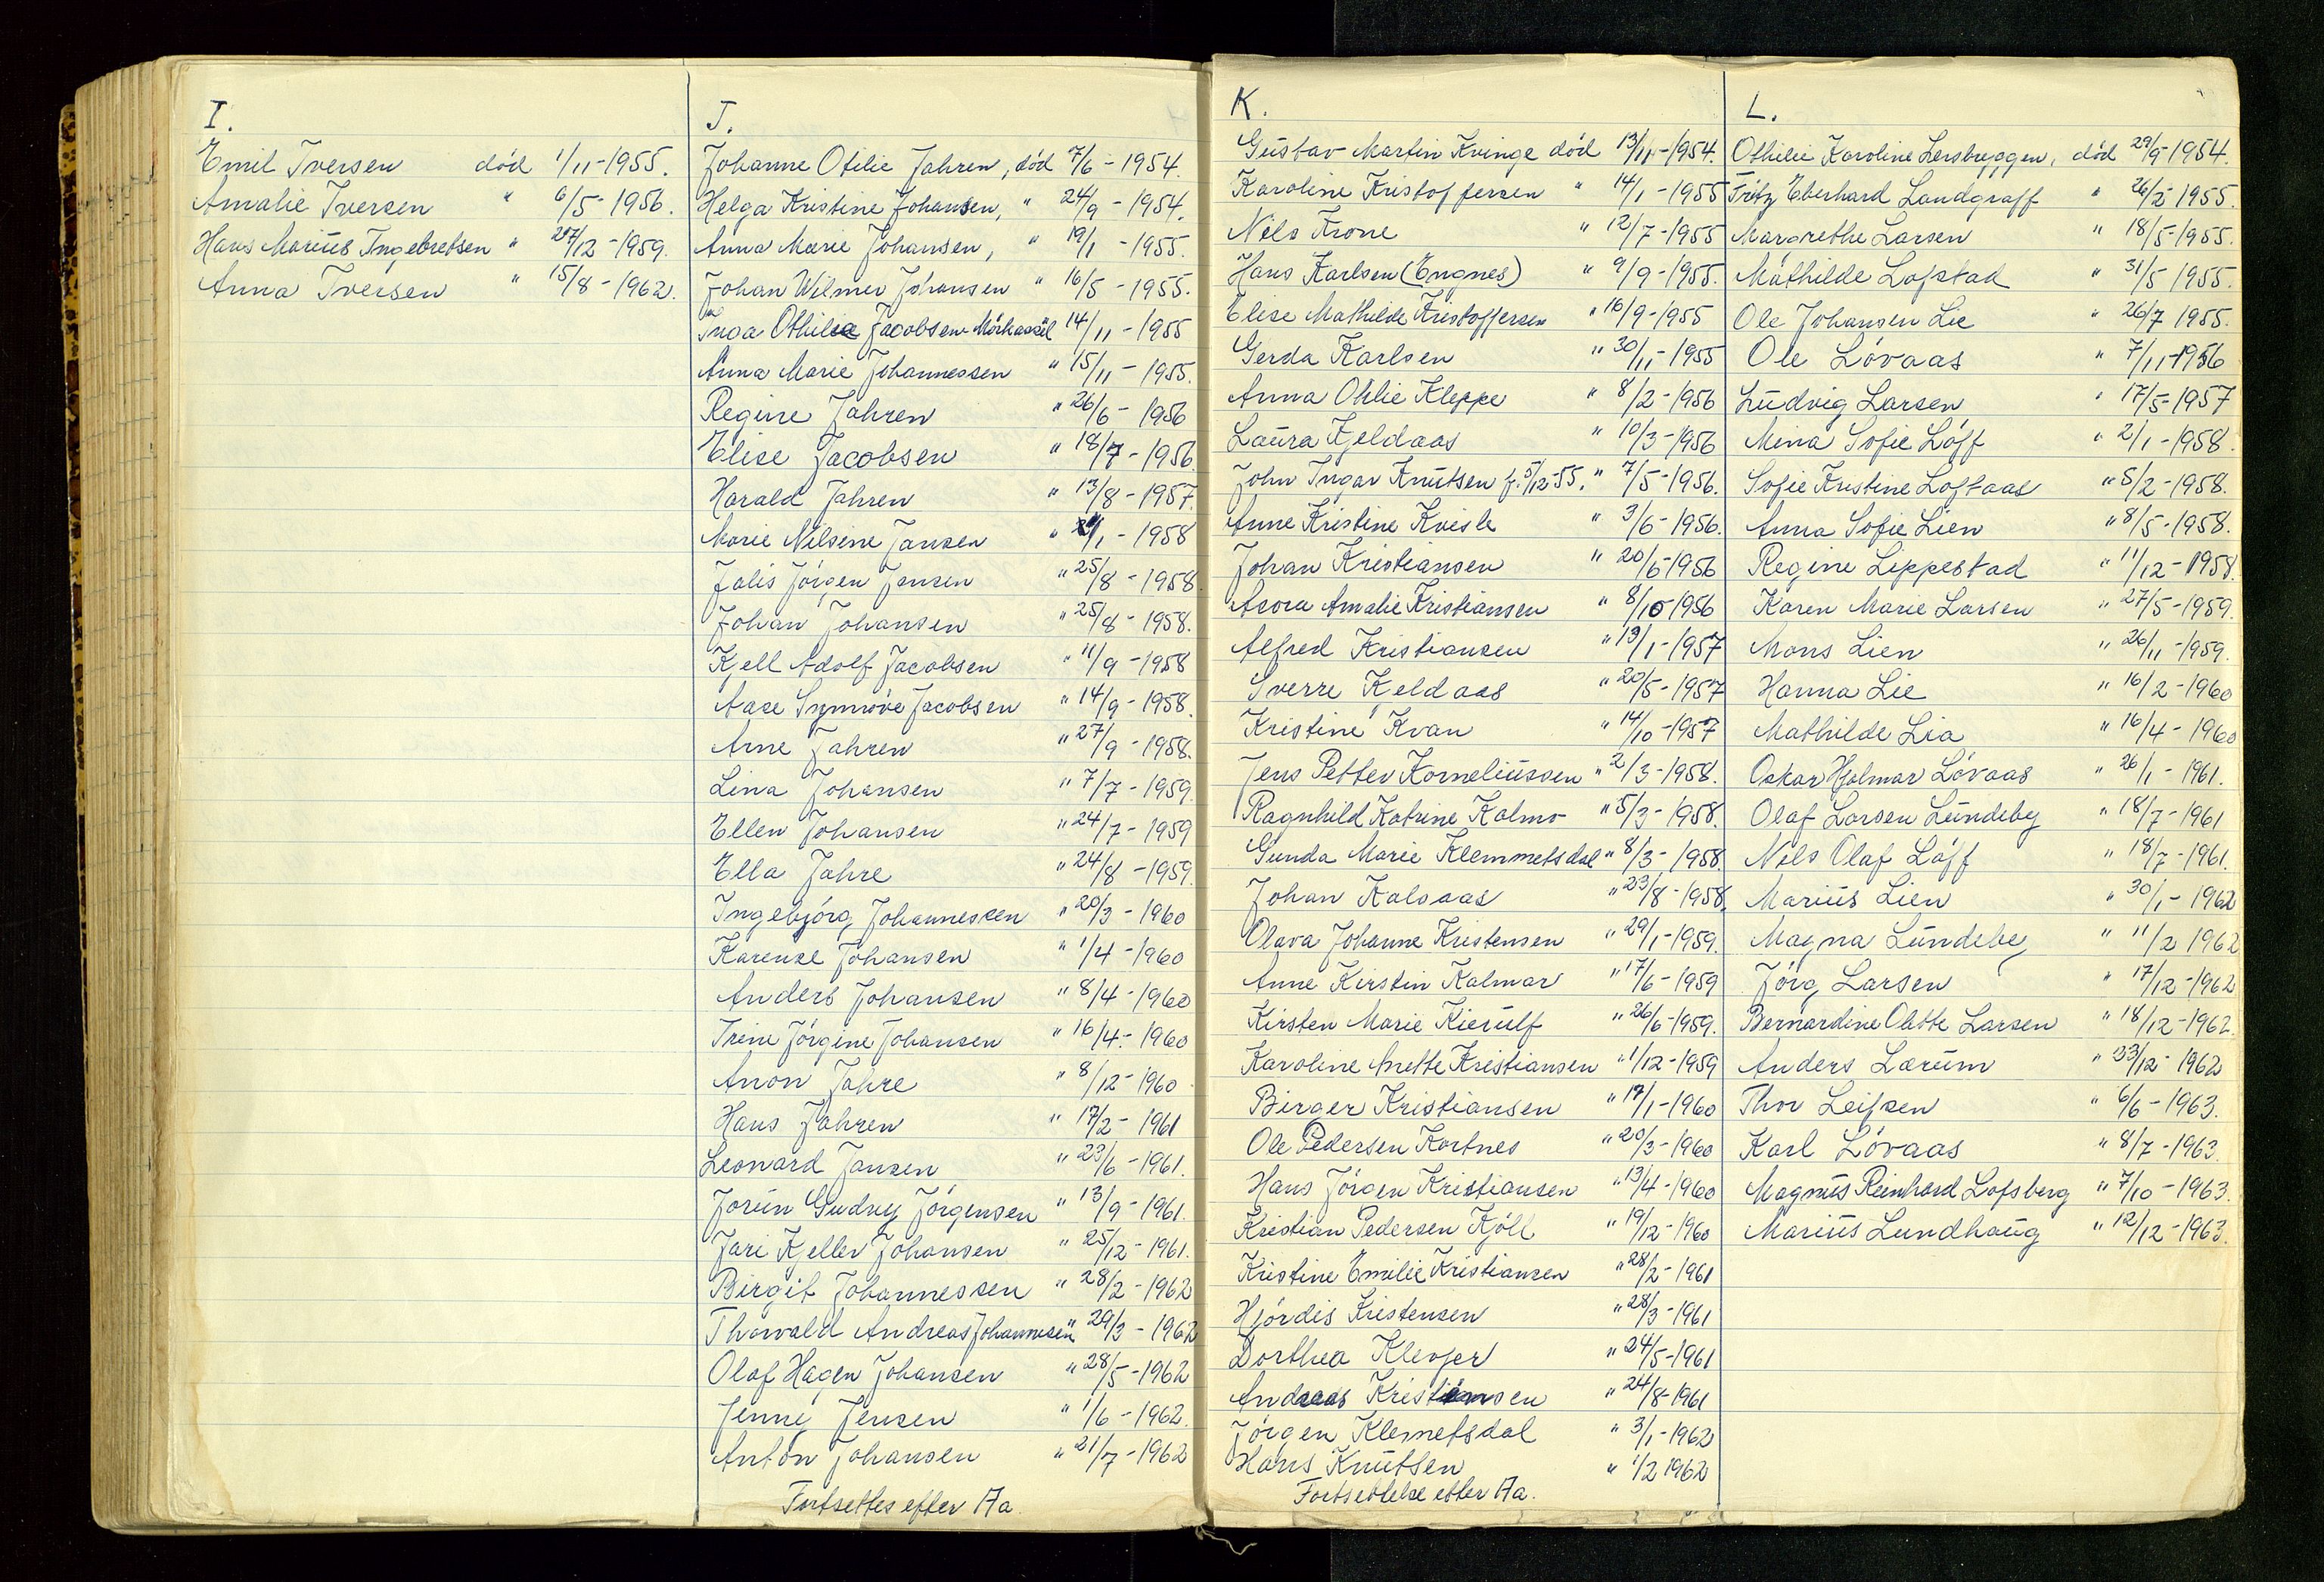 I.
Emil Iversen død 1/11-1955.
Amalie Iversen " 6/5-1956.
Hans Marius Ingebretsen " 27/12-1959.
Anna Iversen " 15/8-1962.
J.
Johanne Otilie Jahren, død 7/6-1954.
Helga Kristine Johansen, " 24/9-1954.
Anna Marie Johansen, " 19/1-1955.
Johan Wilmer Johansen " 16/5-1955.
Inga Othilie Jacobsen 14/11-1955
Anna Marie Johannessen " 15/11-1955.
Regine Jahren " 26/6-1956
Elise Jacobsen " 18/7-1956
Harald Jahren " 13/8-1957.
Marie Nilsine Jansen " /1-1958
Jalis Jörgen Jensen " 25/8-1958
Johan Johansen " 25/8-1958.
Kjell Adolf Jacobsen " 11/9-1958
Aase Synnöve Jacobsen " 14/9-1958.
Arne Jahren " 27/9-1958.
Lina Johansen " 7/7-1959.
Ellen Johansen " 24/7-1959
Ella Jahre " 24/8-1959.
Ingebjörg Johannessen " 20/3-1960
Karense Johansen " 1/4-1960
Anders Johansen " 8/4-1960
Trine Jörgine Johansen " 16/4-1960
Anon Jahre " 8/12-1960
Hans Jahren " 17/2-1961
Leonard Jansen " 23/6-1961.
Jorun Gudny Jörgensen " 13/9-1961.
Jari Kjeller Johansen " 25/12-1961.
Birgit Johannessen " 28/2-1962
Thorvald Andreas Johannesen " 29/3-1962
Olaf Hagen Johansen " 28/5-1962
Jenny Jensen " 1/6-1962.
Anton Johansen " 21/7-1962
Fortsettes efter Aa.
K.
Gustav Martin Kvinge død 13/11-1954.
Karoline Kristoffersen " 14/1-1955
Nils Krone " 12/7-1955
Hans Karlsen (Engnes) " 9/9-1955.
Elise Mathilde Kristoffersen " 16/9-1955
Gerda Karlsen " 30/11-1955
Anna Otilie Kleppe " 8/2-1956
Laura Kjeldaas " 10/3-1956
John Ingar Knutsen f. 5/12-55. " 7/5-1956.
Anne Kristine Kvisle " 3/6-1956.
Johan Kristiansen " 20/6-1956
Asora Amalie Kristiansen " 8/10-1956
Alfred Kristiansen " 19/1-1957
Sverre Keldaas " 20/5-1957
Kristine Kvan " 14/10-1957
Jens Petter Korneliussen " 2/3-1958.
Ragnhild Katrine Kalmo " 5/3-1958.
Gunda Marie Klemmetsdal " 8/3-1958.
Johan Kalsaas " 23/8-1958.
Olava Johanne Kristensen " 29/1-1959.
Anne Kirstin Kalmar " 17/6-1959
Kirsten Marie Kierulf " 26/6-1959.
Karoline Anette Kristiansen " 1/12-1959
Birger Kristiansen " 17/1-1960
Ole Pedersen Kortnes " 20/3-1960
Hans Jörgen Kristiansen " 13/4-1960
Kristian Pedersen Kjöll " 19/12-1960
Kristine Emilie Kristiansen " 28/2-1961
Hjördis Kristensen " 28/3-1961
Dorthea Klevjer " 24/5-1961
Andreas Kristiansen " 24/8-1961
Jörgen Klemetsdal " 3/1-1962
Hans Knutsen " 1/2 1962
Fortsettelse etter Aa.
L.
Othilie Karoline Lersbryggen, død 29/9-1954.
Fritz Eberhard Landgraff " 26/2 1955.
Margrethe Larsen " 18/5-1955.
Mathilde Lofstad " 31/5 1955.
Ole Johansen Lie " 26/7 1955.
Ole Lövaas " 7/11-1956
Ludvig Larsen " 17/5-1957
Mina Sofie Löff " 2/1-1958.
Sofie Kristine Loftaas " 5/2-1958.
Anna Sofie Lien " 8/5-1958.
Regine Leppestad " 11/12-1958.
Karen Marie Larsen " 27/5-1959.
Mons Lien " 26/11-1959.
Hanna Lie " 16/2-1960
Mathilde Lia " 16/4-1960
Oskar Hjalmar Lövaas " 26/1-1961.
Olaf Larsen Lundeby " 18/7-1961
Nils Olaf Löff " 18/7-1961.
Marius Lien " 30/1-1962
Magna Lundeby " 11/2 1962
Jörg Larsen " 17/12-1962
Bernardine Olette Larsen " 18/12-1962.
Anders Lærum " 23/12-1962
Thor Leifsen " 6/6-1963.
Karl Lövaas " 8/7-1963.
Magnus Reinhard Lofsberg " 7/10-1963.
Marius Lundhaug " 12/12-1963.